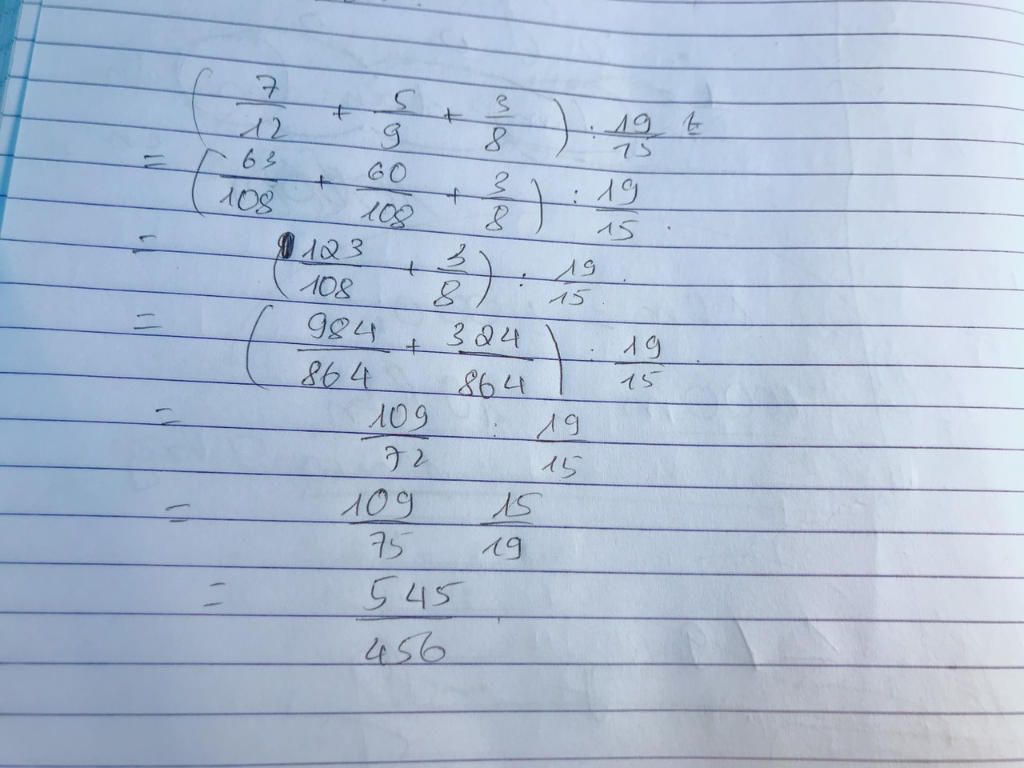 ( 7/12 + 5/9 + 3/8 ) : 19/15
= ( 63/108 + 60/108 + 3/8 ) : 19/15
= ( 123/108 + 3/8 ) : 19/15
= ( 984/864 + 324/864 ) : 19/15
= 109/72 : 19/15
= 109/75 15/19
= 545/456